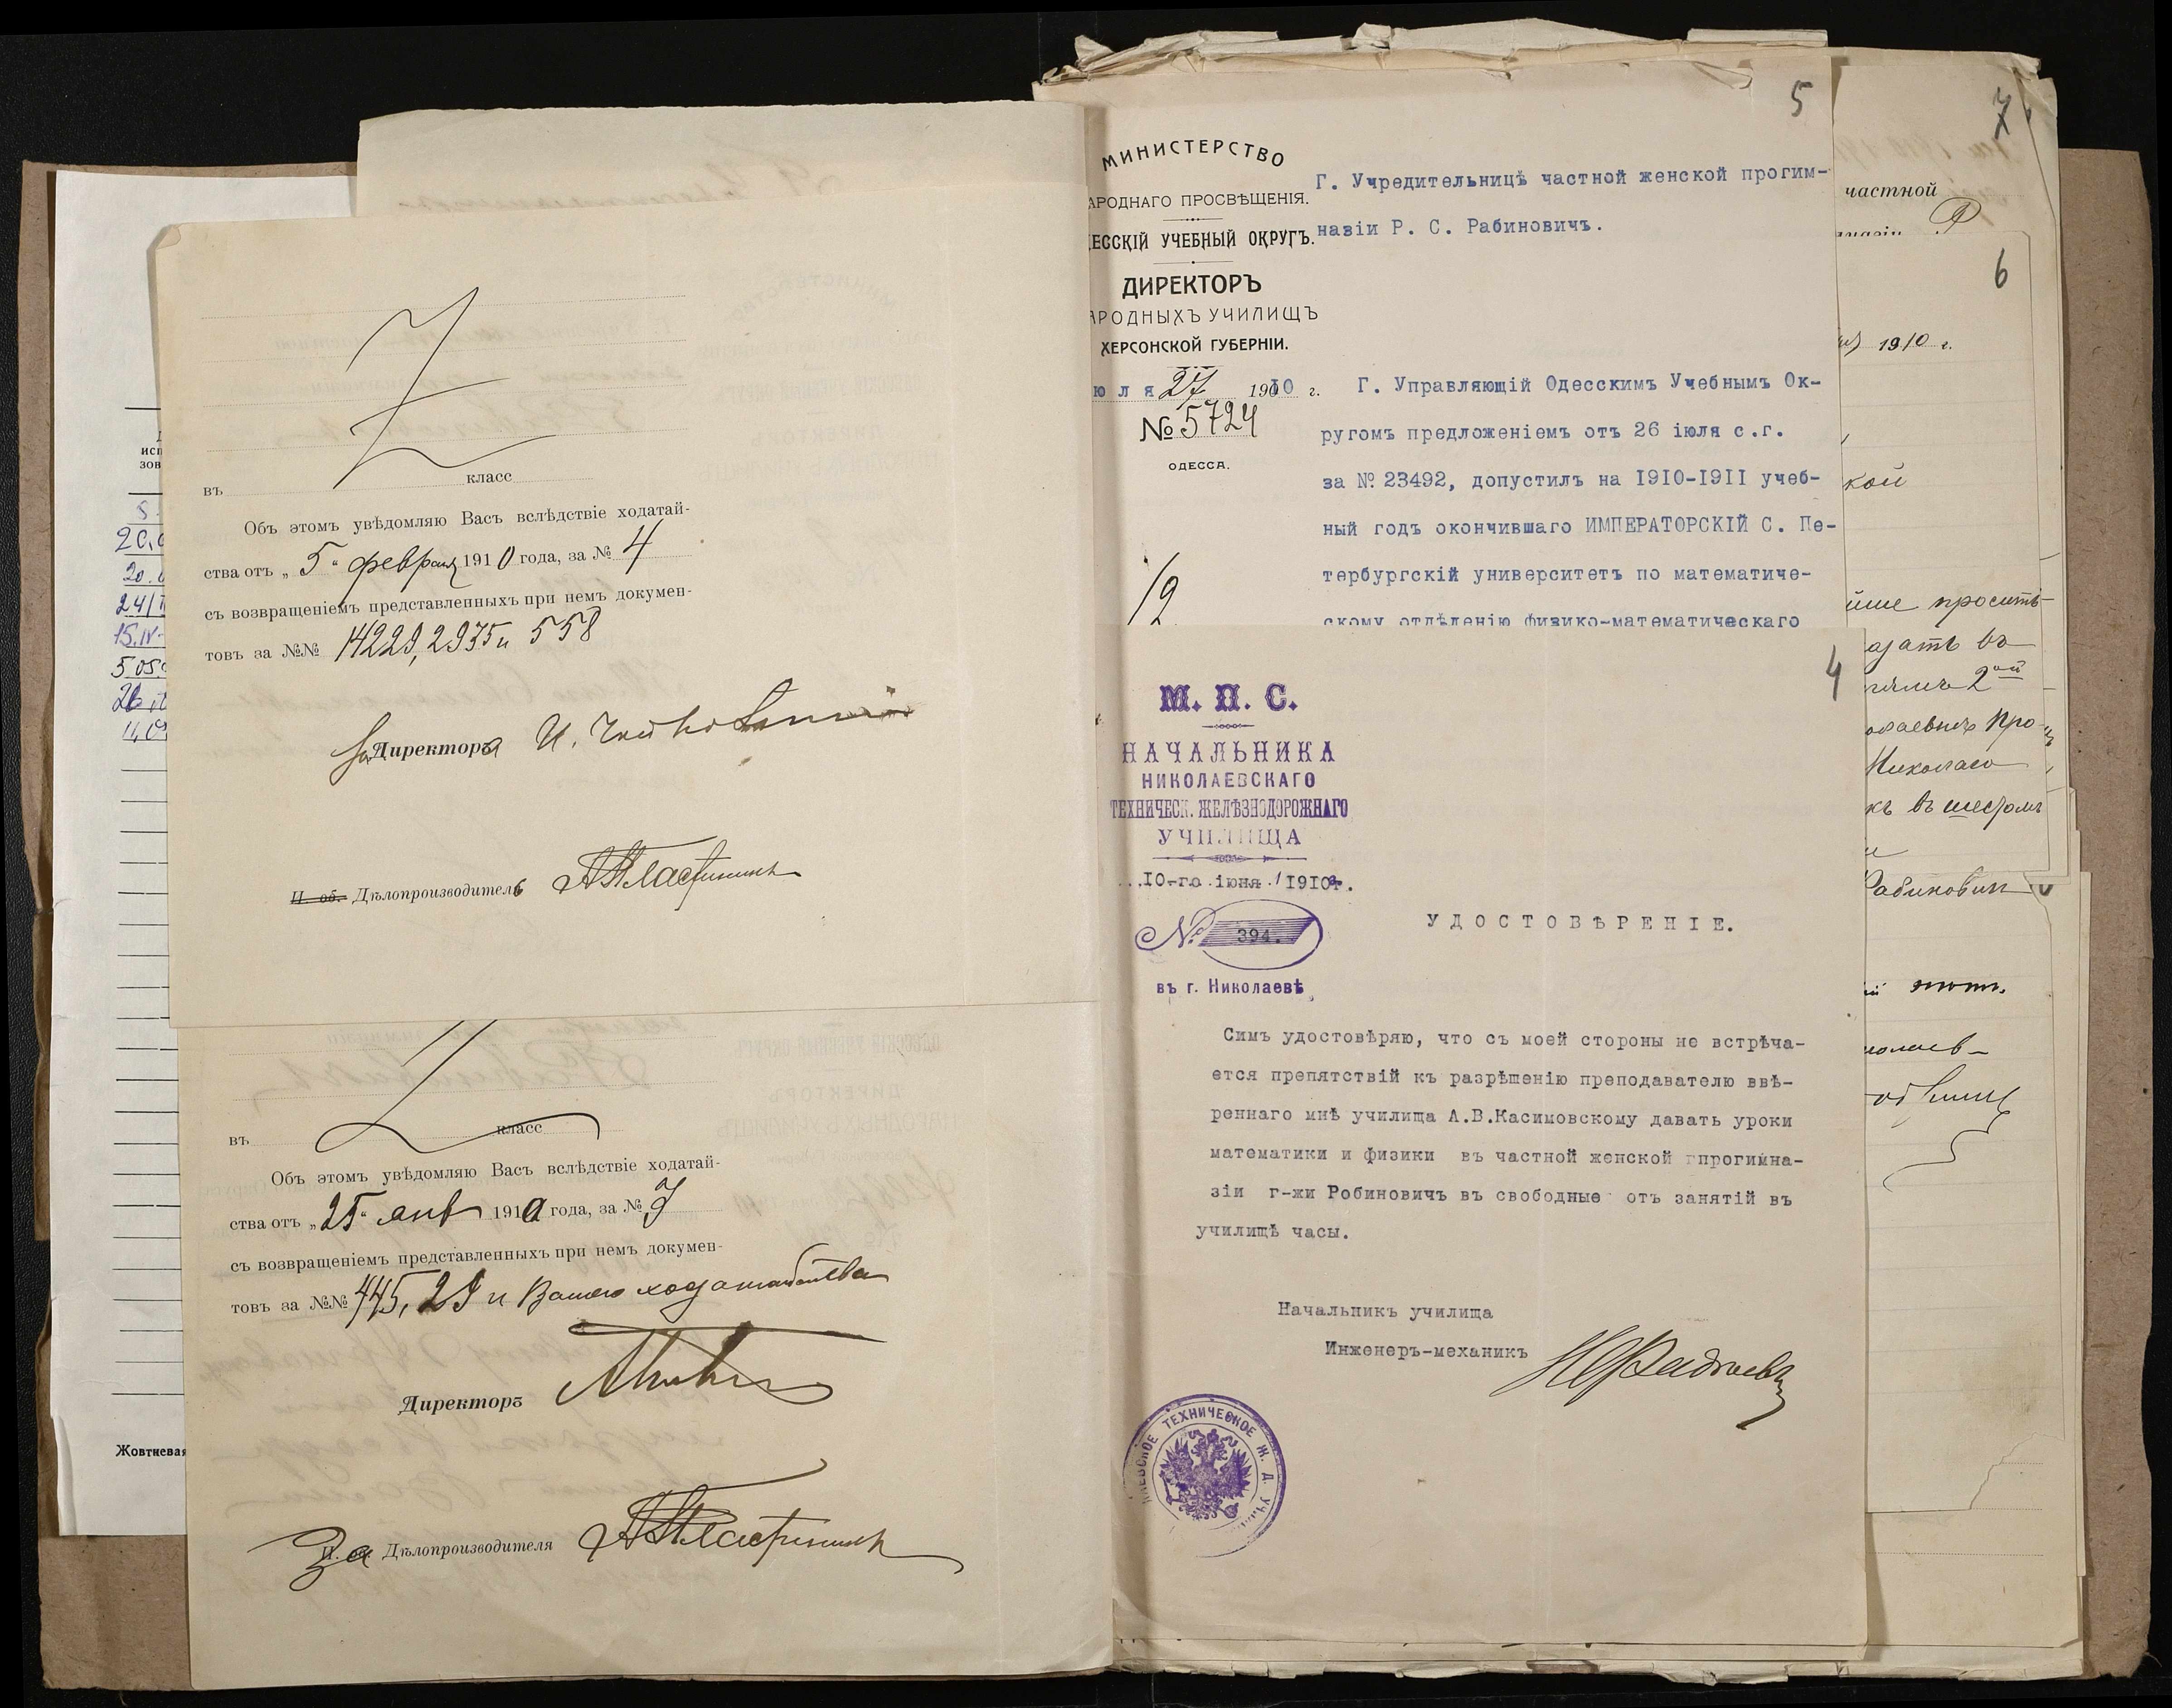 въ класс
Объ этомъ увѣдомляю Васъ вслѣдствіе ходатай-
ства отъ „5" февраля 1910 года, за № 4
съ возвращеніемъ представленныхъ при немъ докумен-
товъ за №№ 14229, 2935 и 558
За Директора
И. об. Дѣлопроизводитель
въ класс
Объ этомъ увѣдомляю Васъ вслѣдствіе ходатай-
ства отъ „25" янв 1910 года, за №
съ возвращеніемъ представленныхъ при немъ докумен-
товъ за №№ 445, 29 и Вашего ходатайства
Директоръ
За Дѣлопроизводителя
5
МИНИСТЕРСТВО
АРОДНАГО ПРОСВѢЩЕНІЯ.
ЕССКІЙ УЧЕБНЫЙ ОКРУГЪ.
ДИРЕКТОРЪ
АРОДНЫХЪ УЧИЛИЩЪ
ХЕРСОНСКОЙ ГУБЕРНІИ.
юля 27 1910 г.
№ 5724
ОДЕССА.
Г. Учредительницѣ частной женской прогим-
назіи Р. С. Рабиновичъ.
Г. Управляющій Одесскимъ Учебнымъ Ок-
ругомъ предложеніемъ отъ 26 іюля с.г.
за № 23492, допустилъ на 1910-1911 учеб-
ный годъ окончившаго ИМПЕРАТОРСКІЙ С. Пе-
тербургскій университетъ по математиче-
скому отдѣленію физико-математическаго
4
М. П. С.
НАЧАЛЬНИКА
НИКОЛАЕВСКАГО
ТЕХНИЧЕСК. ЖЕЛѢЗНОДОРОЖНАГО
УЧИЛИЩА
10-го іюня 1910г.
№ 394.
въ г. Николаевѣ
УДОСТОВѢРЕНІЕ.
Симъ удостовѣряю, что съ моей стороны не встрѣча-
ется препятствій къ разрѣшенію преподавателю ввѣ-
реннаго мнѣ училища А.В.Касимовскому давать уроки
математики и физики въ частной женской прогимна-
зіи г-жи Робиновичъ въ свободные отъ занятій въ
училищѣ часы.
Начальникъ училища
Инженеръ-механикъ
ТЕХНИЧЕСКОЕ Ж. Д. УЧИ
7
частной
6
1910 г.
кой
просить
азать въ
2ой
Николаев
въ шестомъ
Рабинович
20.0
24/
15.IV-
5 05.
Жовтневая